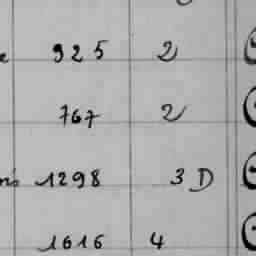 925 2
767 2
1298 3 D
1616 4